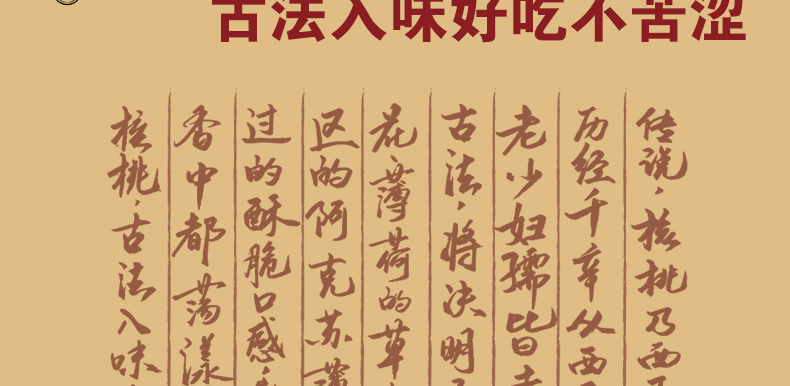 古法入味好吃不苦涩
传说,核桃乃西
历经千辛从西
老少妇孺皆
古法,将决明
花、薄荷的草
区的阿克苏
过的酥脆口感
香中都荡漾
核桃,古法入味